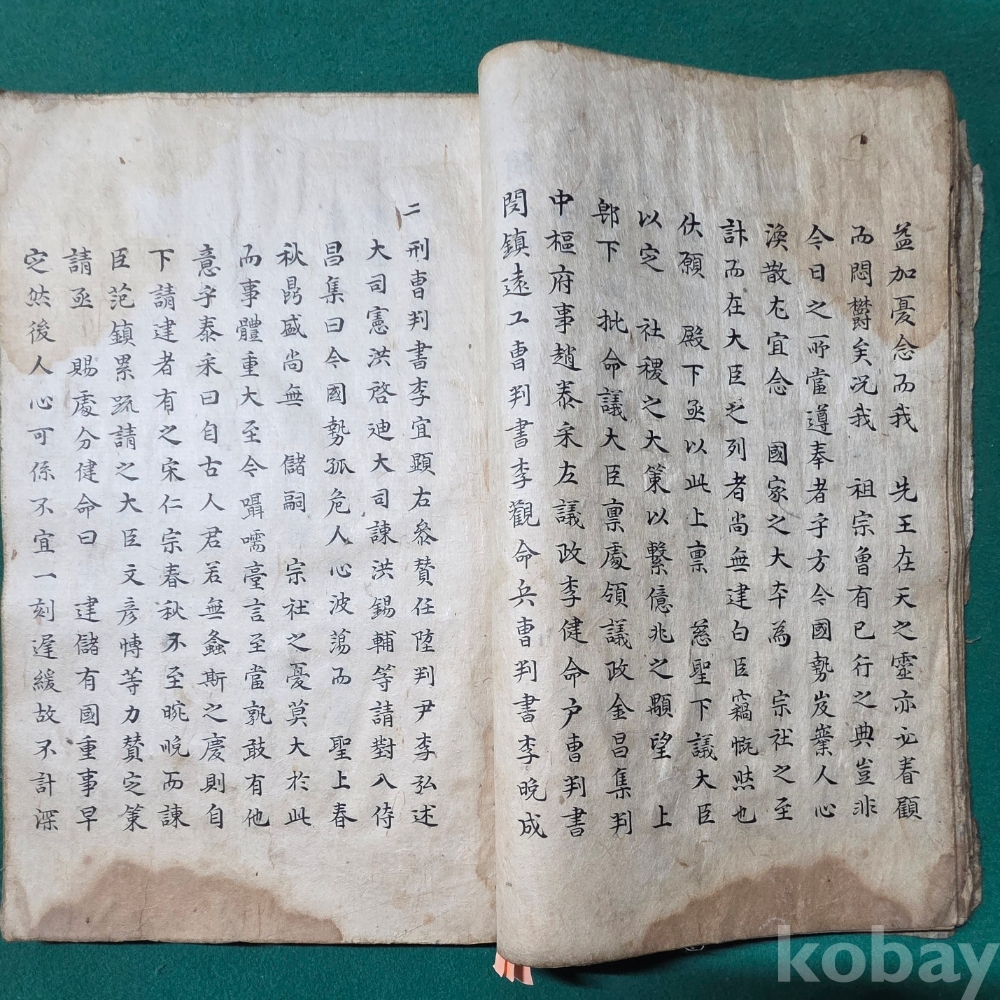 益加憂念而我 先王在天之靈亦必眷顧
而悶欝矣况我 祖宗曾有已行之典豈非
今日之所當遵奉者乎方今國勢岌業人心
渙散尤宜念 國家之大本為 宗社之至
計而在大臣之列者尚無建白臣竊慨然也
伏願 殿下亟以此上禀 慈聖下議大臣
以定 社稷之大策以繫億兆之顒望 上
卽下 批命議大臣禀處領議政金昌集判
中樞府事趙泰采左議政李健命户曹判書
閔鎮遠工曹判書李觀命兵曹判書李晚成
二
刑曹判書李宜顯右叅賛任埅判尹李弘述
大司憲洪啓迪大司諫洪錫輔等請對入侍
昌集曰今國勢孤危人心波蕩而 聖上春
秋鼎盛尚無 儲嗣 宗社之憂莫大於此
而事體重大至今囁嚅臺言至當孰敢有他
意乎泰采曰自古人君若無螽斯之慶則自
下請建者有之宋仁宗春秋不至晼晚而諫
臣范鎮累疏請之大臣文彦博等力賛定策
請亟 賜處分健命曰 建儲有國重事早
定然後人心可係不宜一刻遲緩故不計深
kobay